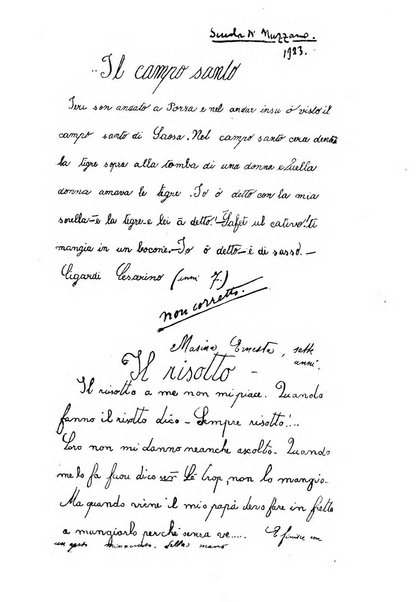 Scuola di Muzzano.
1923.
Il campo santo
Ieri son andato a Porza e nel andar insu ò visto il
campo santo di Saosa. Nel campo santo cera dentro
la tigre sopra alla tomba di una donna e Quella
donna amava le tigre. Io ò detto con la mia
sorella – è la tigre – e lei à detto!
mangia in un bocone. – Io ò detto – è di sasso. –
Cesarino (anni 7.)
non corretto.
Masina Ernesta, sette
anni.
Il risotto –
Il risotto a me non mi piace. Quando
fanno il risotto dico – Sempre risotto!....
Loro non mi danno neanche ascolto. – Quando
me lo fà dico Lé trop, non lo mangio –
Ma quando viene il mio papà devo fare in fretta
a mangiarlo perchè senza ve..... E finisce con
un gesto minaccioso. della mano